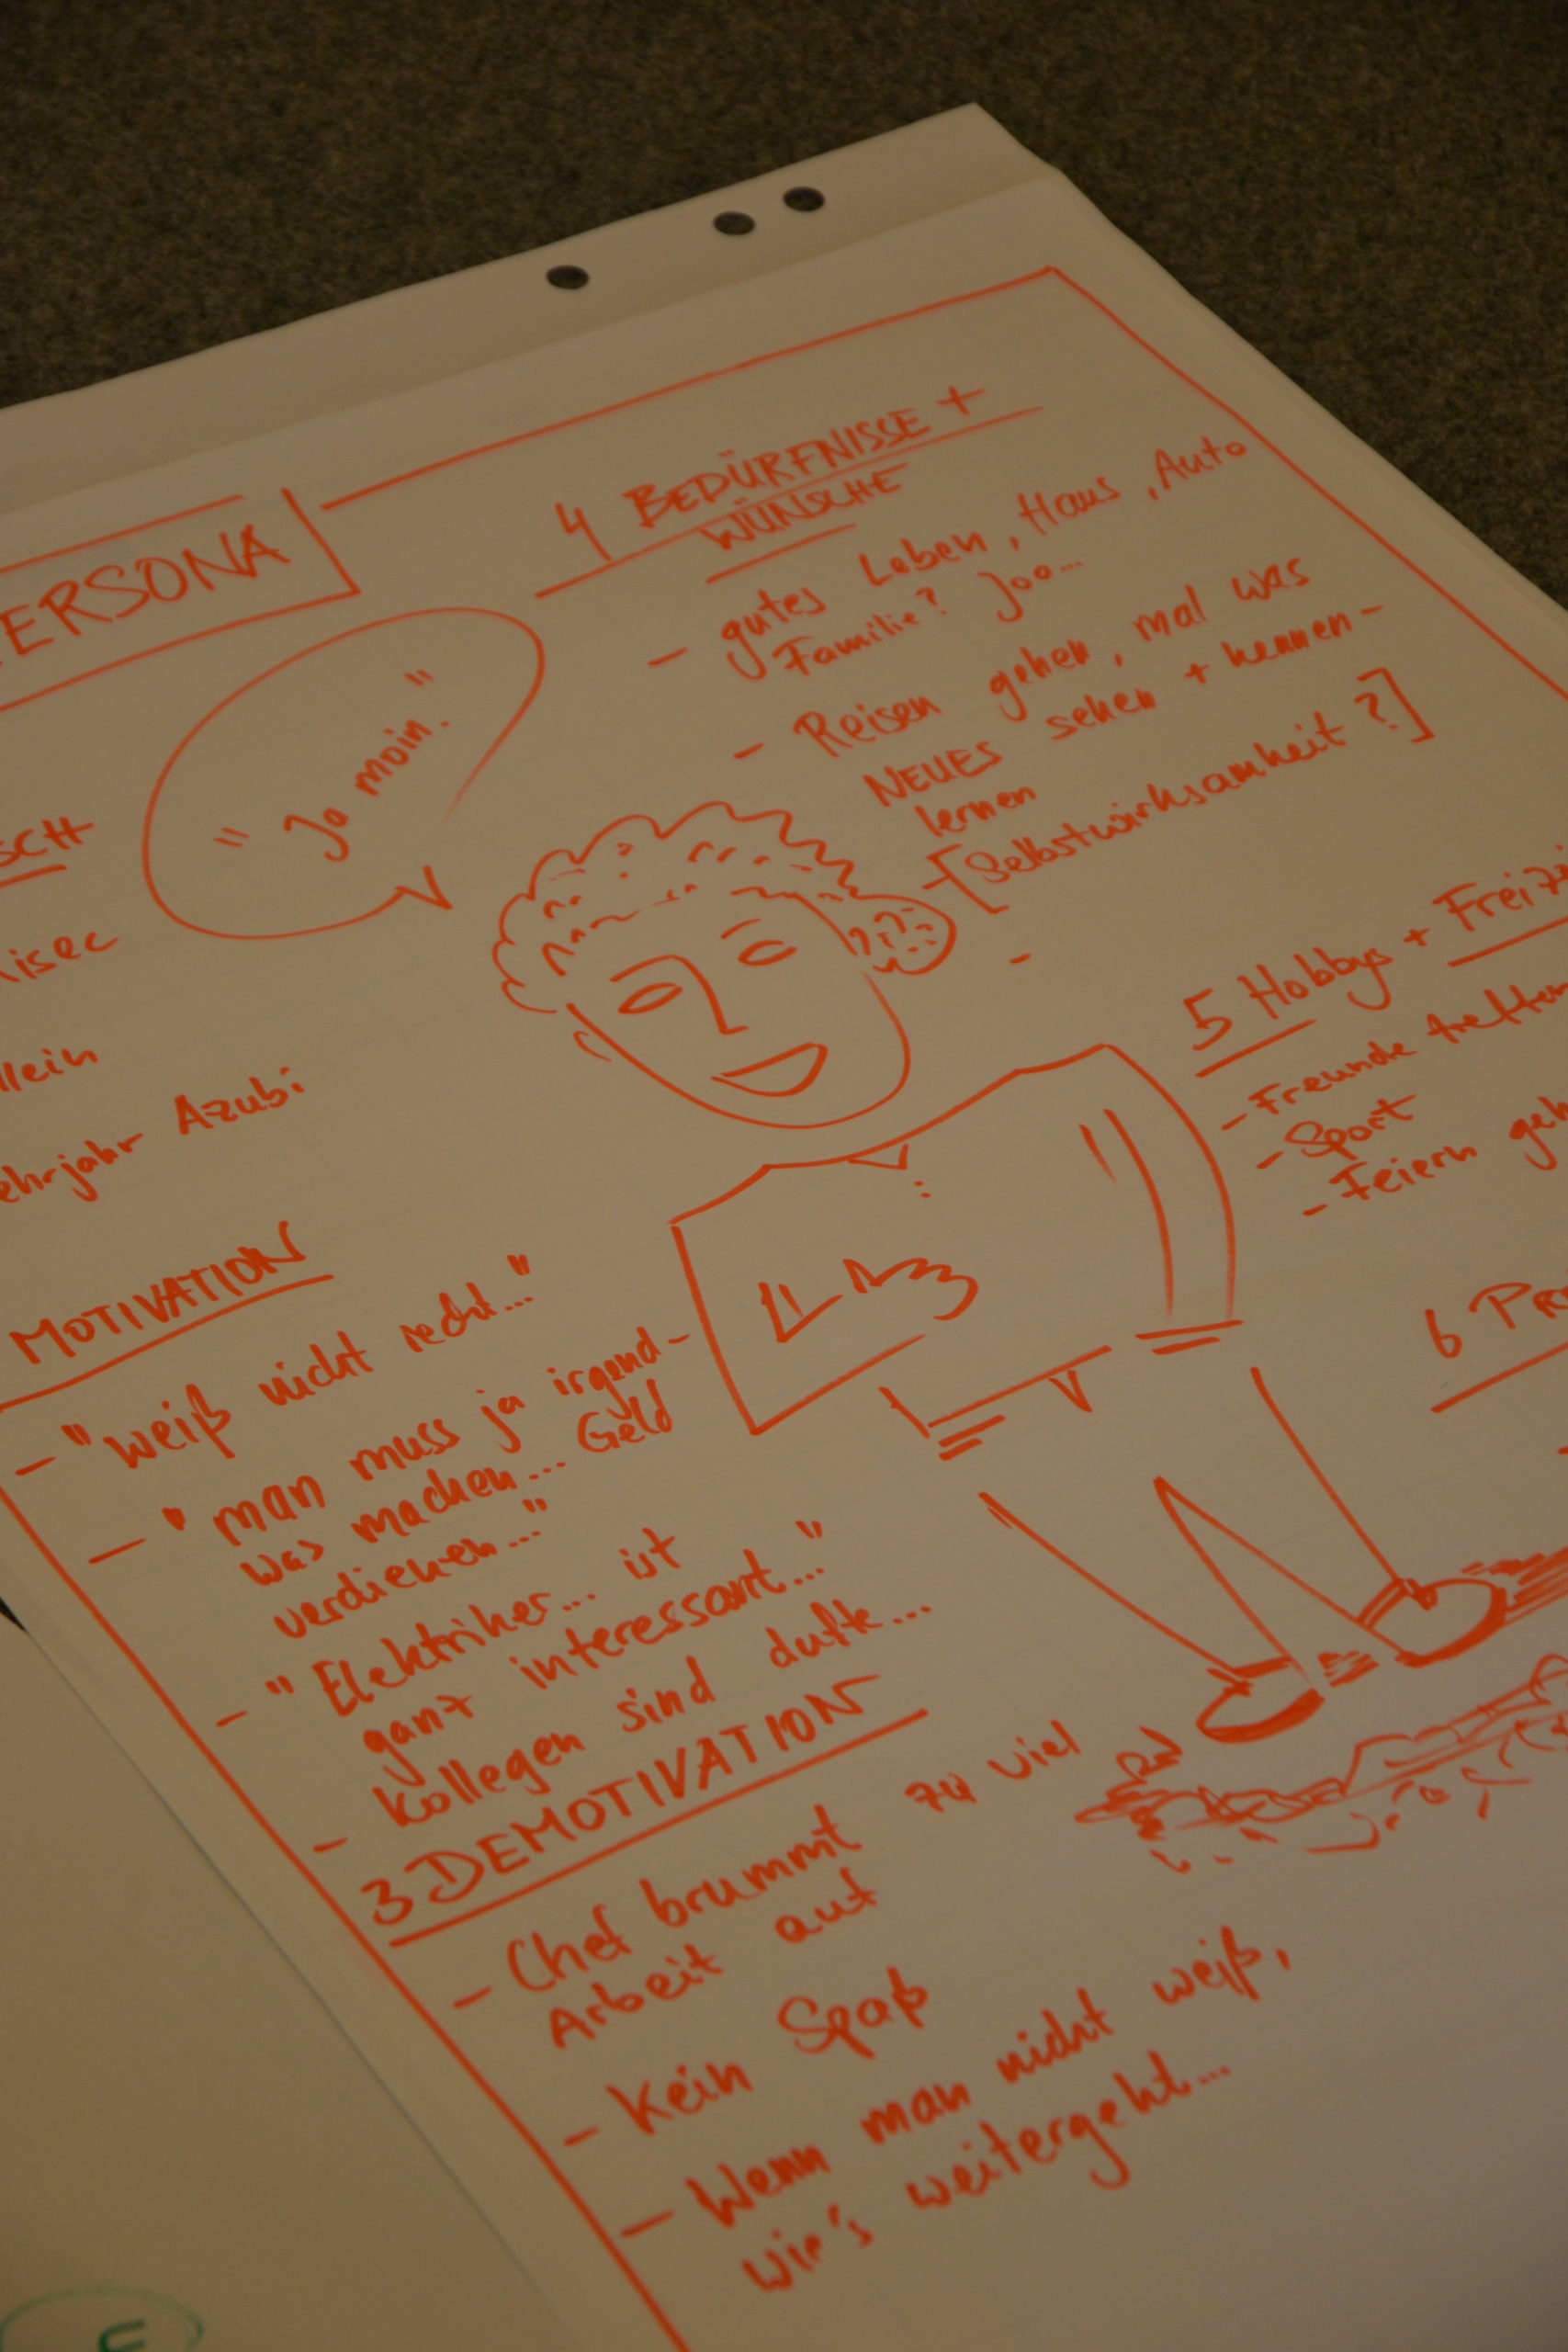 ERSONA
"Ja moin."
SCH
isec
llein
ehrjahr Azubi
MOTIVATION
- "weiß nicht recht..."
- "man muss ja irgend-
was machen... Geld
verdienen..."
- "Elektriker... ist
ganz interessant..."
- Kollegen sind dufte...
3 DEMOTIVATION
- Chef brummt zu viel
Arbeit auf
- Kein Spaß
- Wenn man nicht weiß,
wie's weitergeht...
4 BEDÜRFNISSE +
WÜNSCHE
- gutes Leben, Haus, Auto
Familie? Joo...
- Reisen gehen, mal was
NEUES sehen + kennen-
lernen
- [Selbstwirksamheit?]
-
5 Hobbys + Freiz
- Freunde treffen
- Sport
- Feiern geh
6 Pr